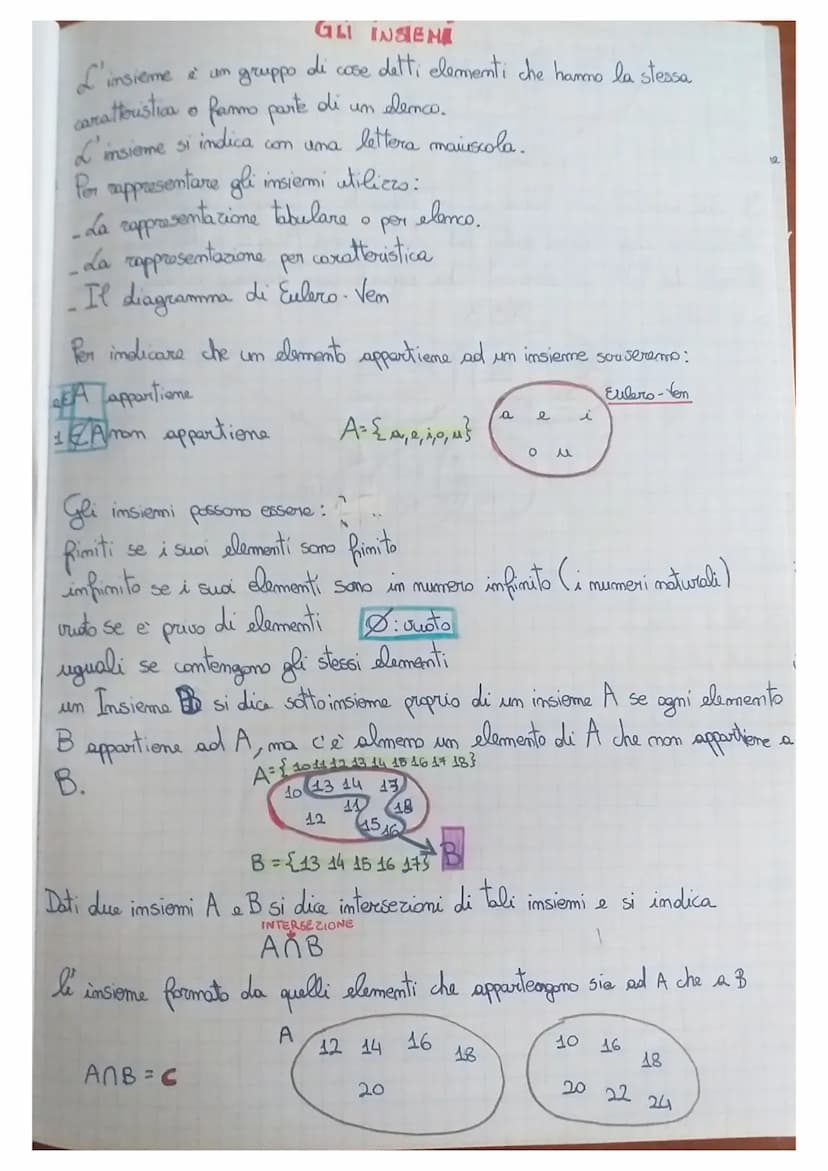 GLI INSIEMI
L'insieme è un gruppo di cose detti elementi che hanno la stessa
caratteristica o fanno parte di un elenco.
L'insieme si indica con una lettera maiuscola.
Per rappresentare gli insiemi utilizzo:
- La rappresentazione tabulare o per elenco.
- La rappresentazione per caratteristica
- Il diagramma di Eulero-Ven
Per indicare che un elemento appartiene ad un insieme scriveremo:
a∈A appartiene
Eulero-Ven
1∉A non appartiene
A={a,e,i,o,u}
a e i
o u
Gli insiemi possono essere:
finiti se i suoi elementi sono finito
infinito se i suoi elementi sono in numero infinito (i numeri naturali)
vuoto se è privo di elementi Ø: vuoto
uguali se contengono gli stessi elementi
un Insieme B si dice sottoinsieme proprio di un insieme A se ogni elemento
B appartiene ad A, ma c'è almeno un elemento di A che non appartiene a
B.
A={10 11 12 13 14 15 16 17 18}
10 13 14 17
12 11 18
15 16
B
B={13 14 15 16 17}
Dati due insiemi A e B si dice intersezioni di tali insiemi e si indica
INTERSEZIONE
A∩B
l'insieme formato da quelli elementi che appartengono sia ad A che a B
A
12 14 16 18
20
10 16 18
20 22 24
A∩B = C